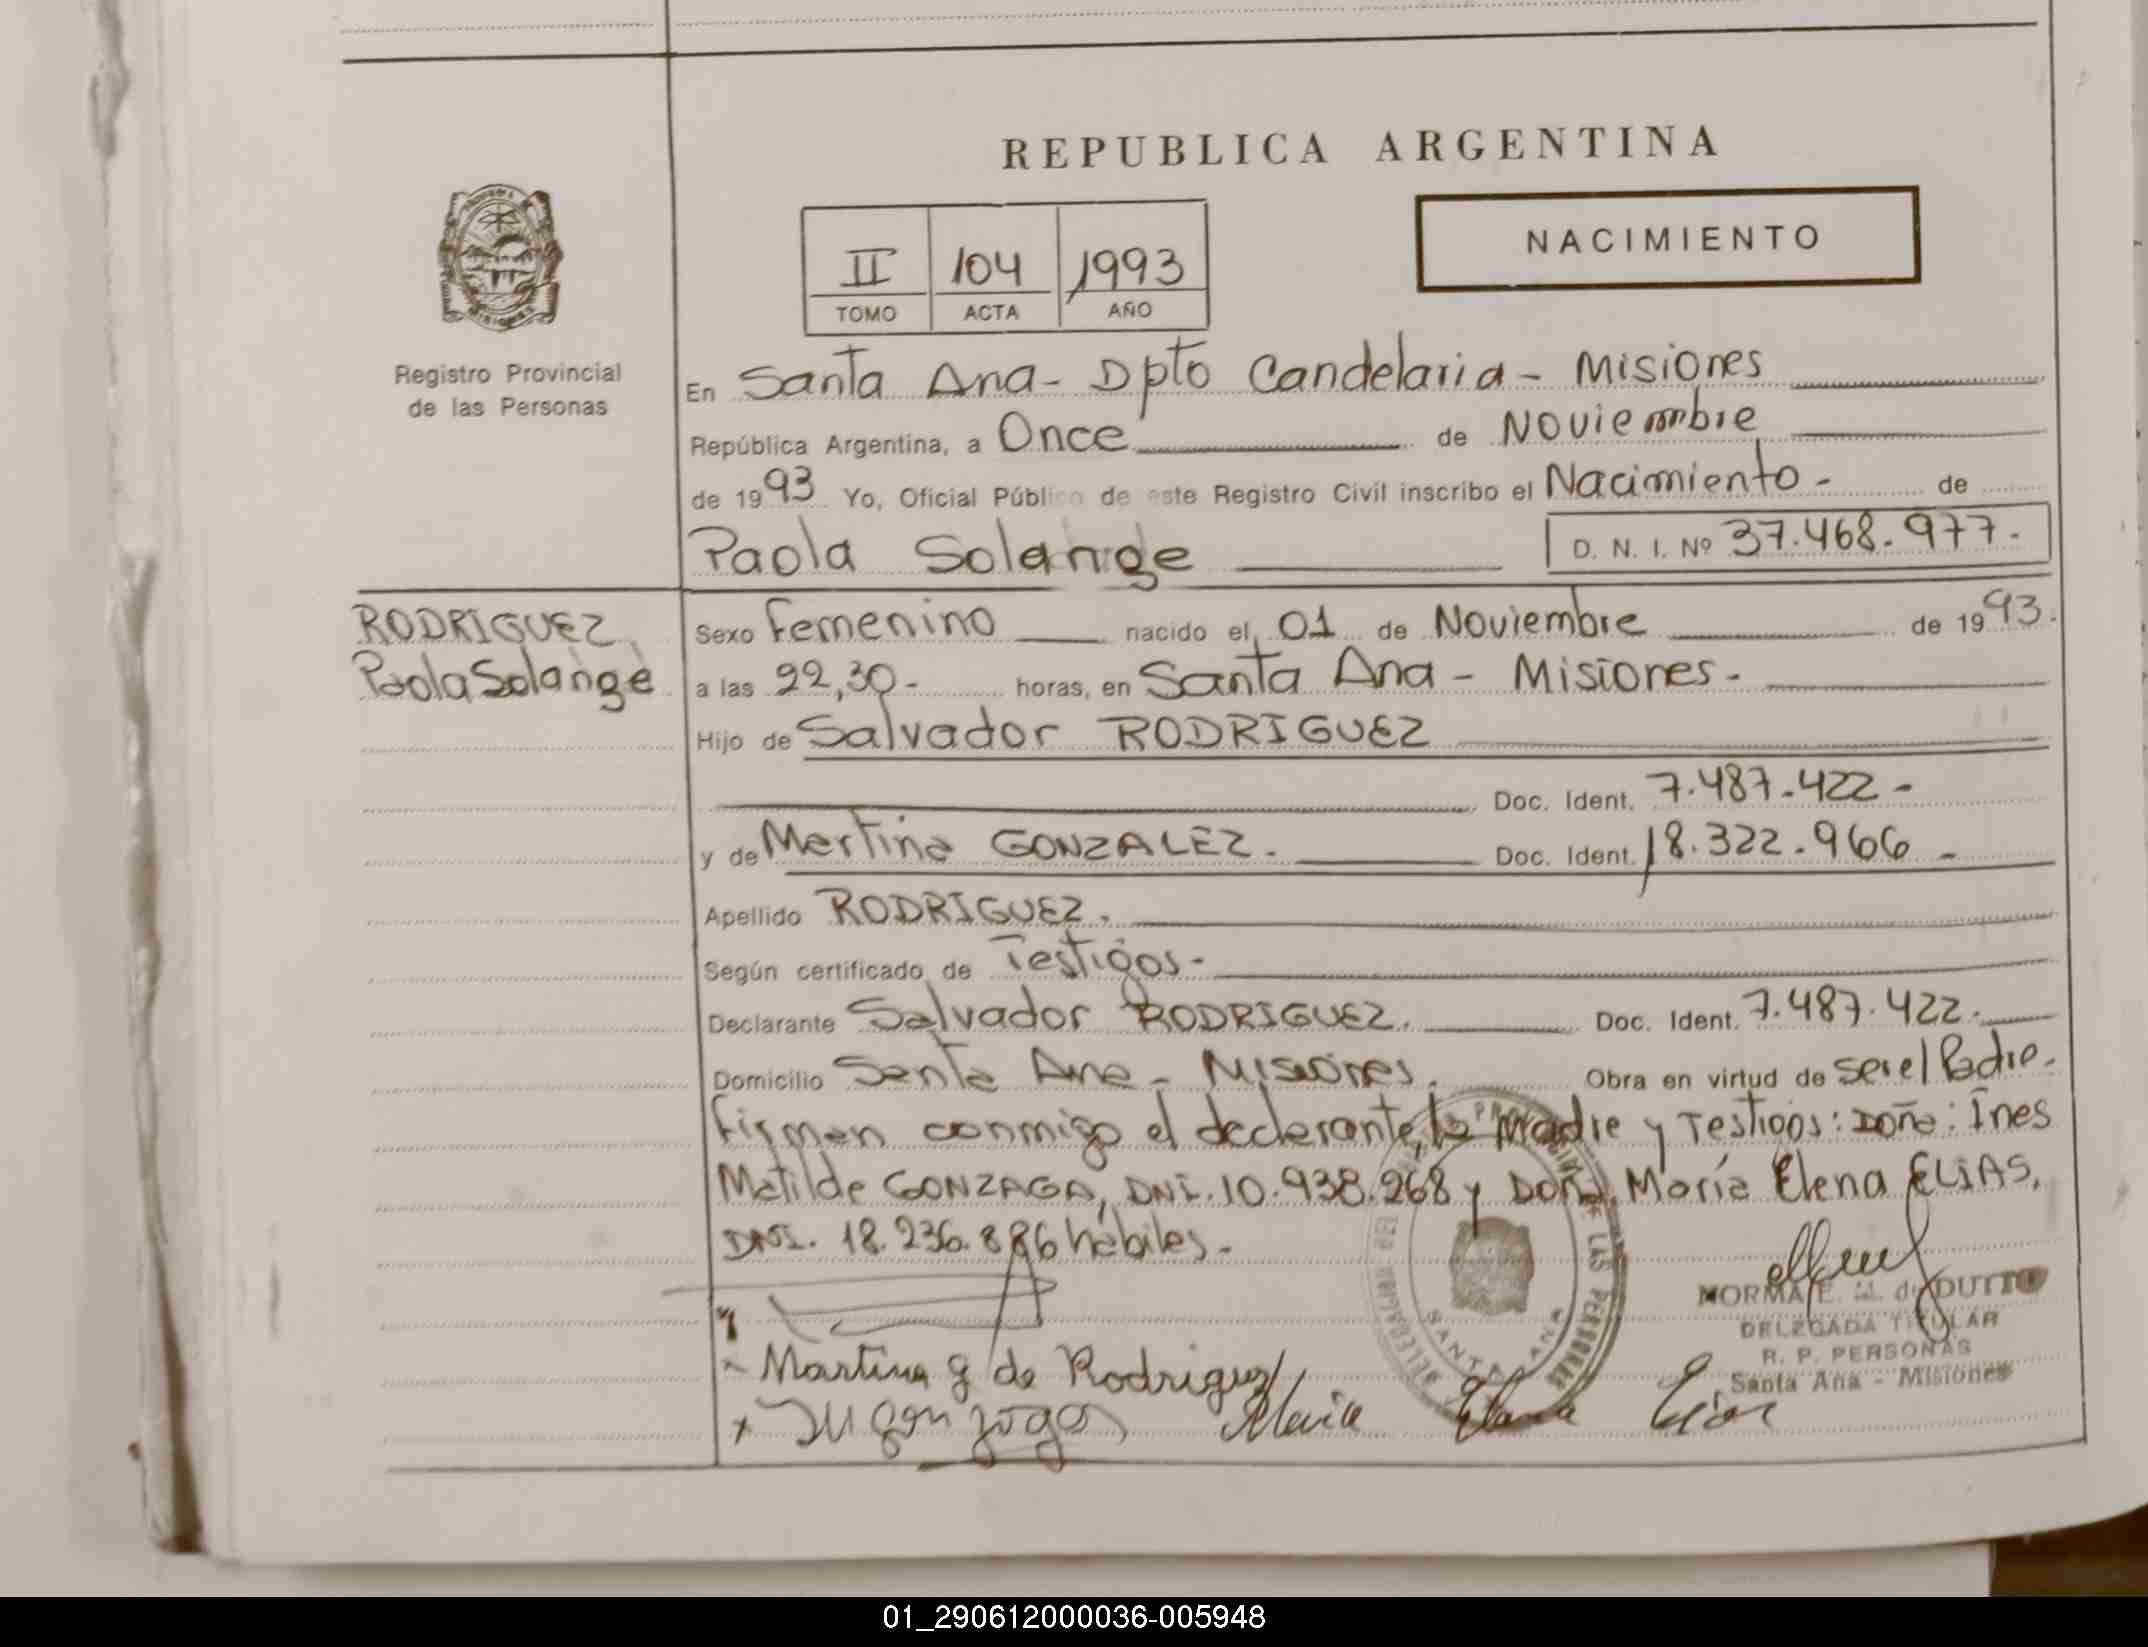 REPUBLICA ARGENTINA
NACIMIENTO
II 104 1993
TOMO ACTA AÑO
Registro Provincial
de las Personas
En Santa Ana - Dpto Candelaria - Misiones
República Argentina, a Once de Noviembre
de 1993 Yo, Oficial Público de este Registro Civil inscribo el Nacimiento - de
Paola Solange D. N. I. Nº 37.468.977.-
RODRIGUEZ
Paola Solange
Sexo Femenino nacido el 01 de Noviembre de 1993.
a las 22,30 - horas, en Santa Ana - Misiones -
Hijo de Salvador RODRIGUEZ
Doc. Ident. 7.487.422 -
y de Martina GONZALEZ. Doc. Ident. 18.322.966 -
Apellido RODRIGUEZ.
Según certificado de Testigos -
Declarante Salvador RODRIGUEZ. Doc. Ident. 7.487.422.
Domicilio Santa Ana - Misiones. Obra en virtud de ser el Padre.
Firman conmigo el declarante, la Madre y Testigos: Doña: Ines
Matilde GONZAGA, DNI. 10.938.268 y Doña. María Elena ELIAS,
DNI. 18.236.886 hábiles -
NORMA E. de DUTTO
DELEGADA TITULAR
R. P. PERSONAS
Santa Ana - Misiones
DE LAS PERSONAS
SANTA ANA
Martina G de Rodriguez
Maria Elena Elias
01_290612000036-005948